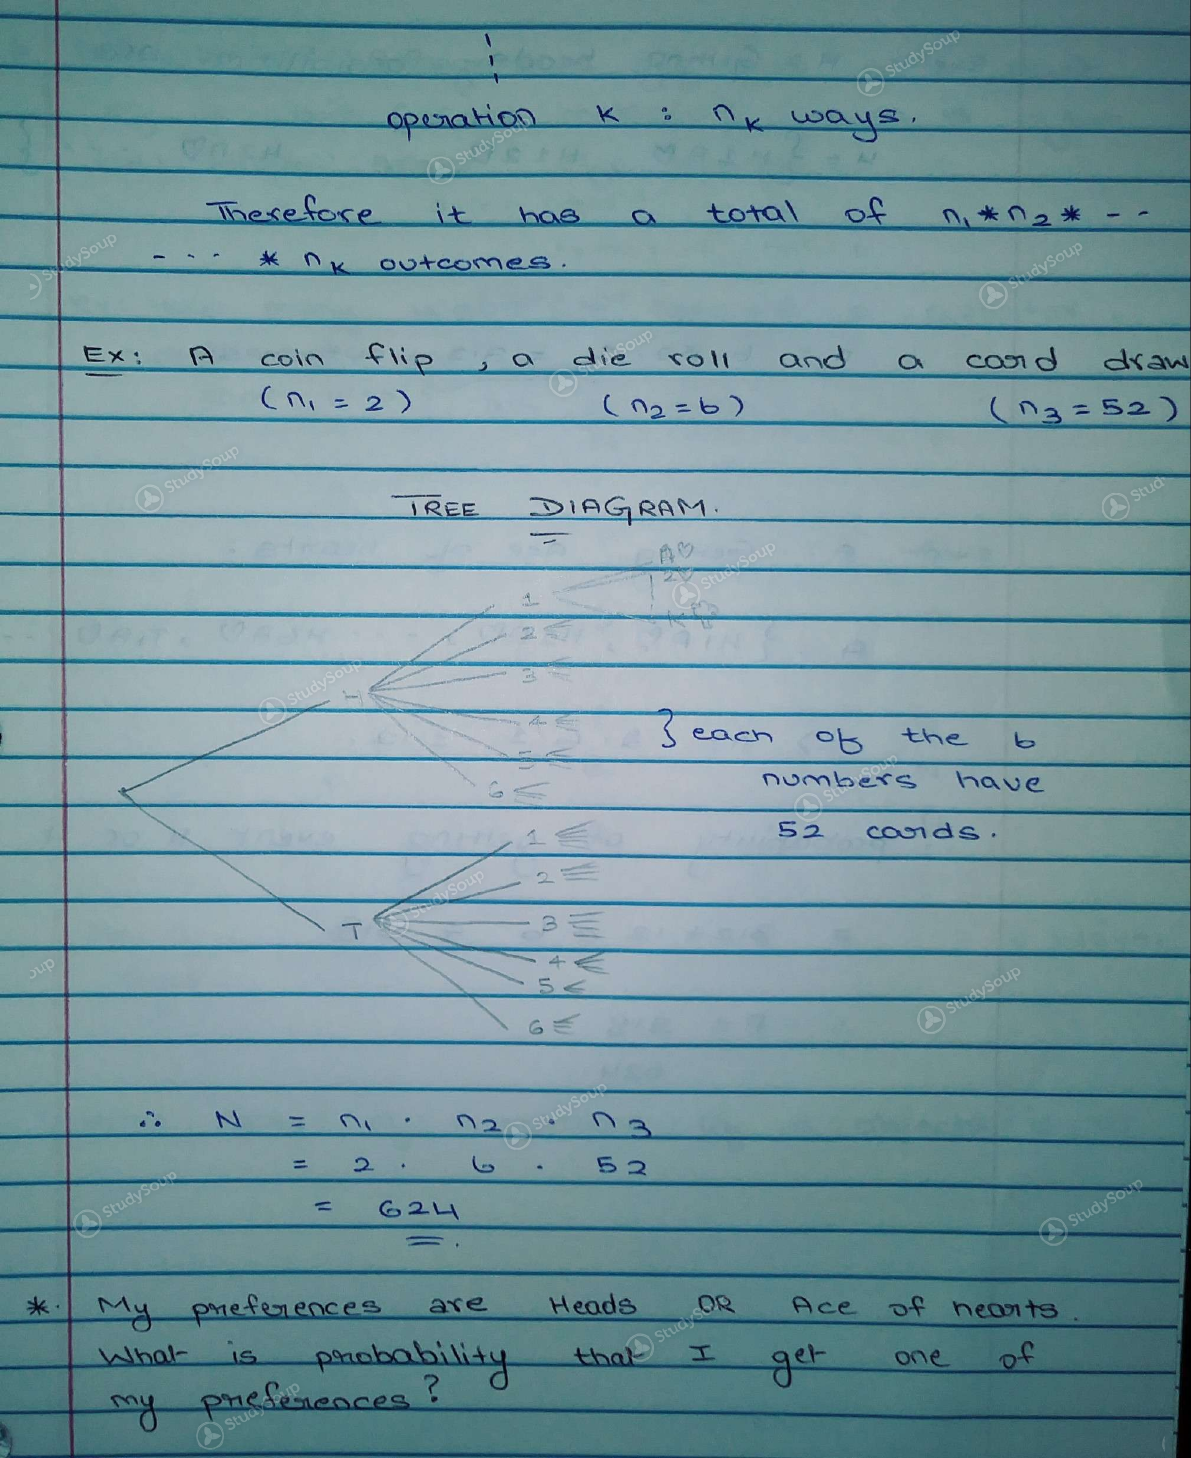 operation K : nK ways.
Therefore it has a total of n1 * n2 * - -
- - - * nK outcomes.
Ex: A coin flip, a die roll and a card draw
(n1 = 2) (n2 = 6) (n3 = 52)
TREE DIAGRAM.
A♡
2♡
K♡
1
2
3
H
4
5
6
} each of the 6
numbers have
52 cards.
1
2
3
T
4
5
6
∴ N = n1 · n2 · n3
= 2 · 6 · 52
= 624
*. My preferences are Heads OR Ace of hearts.
What is probability that I get one of
my preferences?
StudySoup